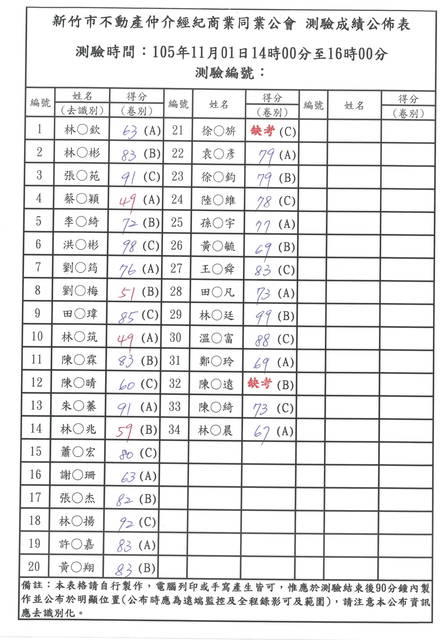 新竹市不動產仲介經紀商業同業公會 測驗成績公佈表
測驗時間：105年11月01日14時00分至16時00分
測驗編號：
編號 姓名(去識別) 得分(卷別) 編號 姓名(去識別) 得分(卷別) 編號 姓名 得分(卷別)
1 林○欽 63 (A) 21 徐○旃 缺考 (C)
2 林○彬 83 (B) 22 袁○彥 79 (A)
3 張○苑 91 (C) 23 徐○鈞 79 (B)
4 蔡○穎 49 (A) 24 陸○維 78 (C)
5 李○綺 72 (B) 25 孫○宇 77 (A)
6 洪○彬 98 (C) 26 黃○毓 69 (B)
7 劉○筠 76 (A) 27 王○舜 83 (C)
8 劉○梅 51 (B) 28 田○凡 73 (A)
9 田○瑋 85 (C) 29 林○廷 99 (B)
10 林○筑 49 (A) 30 溫○富 88 (C)
11 陳○霖 83 (B) 31 鄭○玲 69 (A)
12 陳○晴 60 (C) 32 陳○遠 缺考 (B)
13 朱○蓁 91 (A) 33 陳○綺 73 (C)
14 林○兆 59 (B) 34 林○晨 67 (A)
15 蕭○宏 80 (C)
16 謝○珊 63 (A)
17 張○杰 82 (B)
18 林○揚 92 (C)
19 許○嘉 83 (A)
20 黃○翔 83 (B)
備註：本表格請自行製作，電腦列印或手寫產生皆可，惟應於測驗結束後90分鐘內製
作並公布於明顯位置(公布時應為遠端監控及全程錄影可及範圍)，請注意本公布資訊
應去識別化。